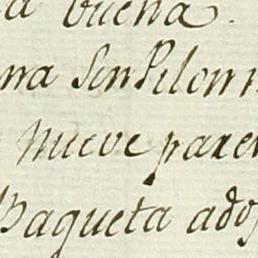 a buena.
na Sen Pilon n
Nueve parex
Baqueta ados